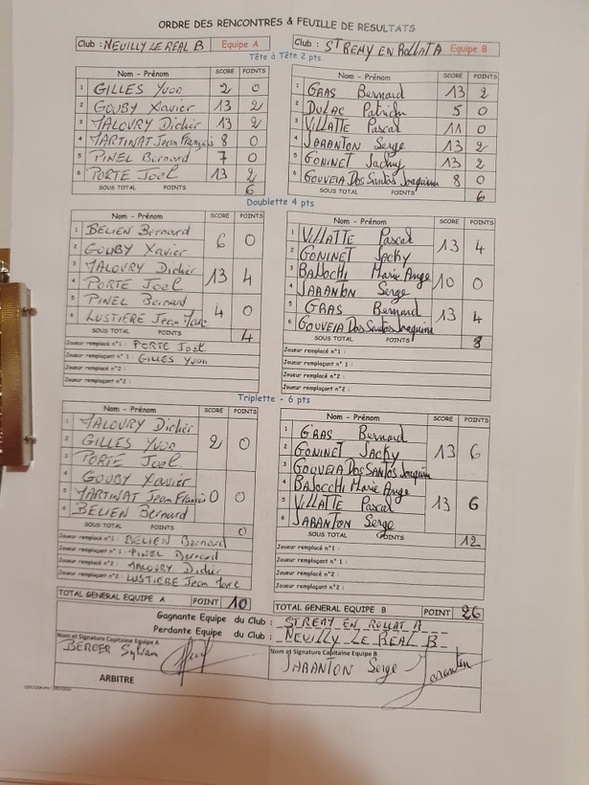 ORDRE DES RENCONTRES & FEUILLE DE RESULTATS
Club : NEUILLY LE REAL B Equipe A
Club : ST REMY EN ROLLAT A Equipe B
Tête à Tête 2 pts
Nom - Prénom SCORE POINTS
1 GILLES Yvon 2 0
2 GOUBY Xavier 13 2
3 MALOURY Didier 13 2
4 MARTINAT Jean François 8 0
5 PINEL Bernard 7 0
6 PORTE Joel 13 2
SOUS TOTAL POINTS 6
Nom - Prénom SCORE POINTS
1 GRAS Bernard 13 2
2 DULAC Patrick 5 0
3 VILLATTE Pascal 11 0
4 JARANTON Serge 13 2
5 GONINET Jacky 13 2
6 GOUVEIA Dos Santos Joaquim 8 0
SOUS TOTAL POINTS 6
Doublette 4 pts
Nom - Prénom SCORE POINTS
1 BELIEN Bernard 6 0
2 GOUBY Xavier
3 MALOURY Didier 13 4
4 PORTE Joel
5 PINEL Bernard 4 0
6 LUSTIERE Jean Marc
SOUS TOTAL POINTS 4
Joueur remplacé n°1 : PORTE Joel
Joueur remplaçant n°1 : GILLES Yvon
Joueur remplacé n°2 :
Joueur remplaçant n°2 :
Nom - Prénom SCORE POINTS
1 VILLATTE Pascal 13 4
2 GONINET Jacky
3 BAJOCHI Marie Ange 10 0
4 JARANTON Serge
5 GRAS Bernard 13 4
6 GOUVEIA Dos Santos Joaquim
SOUS TOTAL POINTS 8
Joueur remplacé n°1 :
Joueur remplaçant n°1 :
Joueur remplacé n°2 :
Joueur remplaçant n°2 :
Triplette - 6 pts
Nom - Prénom SCORE POINTS
1 MALOURY Didier
2 GILLES Yvon 2 0
3 PORTE Joel
4 GOUBY Xavier
5 MARTINAT Jean François 0 0
6 BELIEN Bernard
SOUS TOTAL POINTS 0
Joueur remplacé n°1 : BELIEN Bernard
Joueur remplaçant n°1 : PINEL Bernard
Joueur remplacé n°2 : MALOURY Didier
Joueur remplaçant n°2 : LUSTIERE Jean Marc
TOTAL GENERAL EQUIPE A POINT 10
Nom - Prénom SCORE POINTS
1 GRAS Bernard
2 GONINET Jacky 13 6
3 GOUVEIA Dos Santos Joaquim
4 BAJOCCHI Marie Ange
5 VILLATTE Pascal 13 6
6 JARANTON Serge
SOUS TOTAL POINTS 12
Joueur remplacé n°1 :
Joueur remplaçant n°1 :
Joueur remplacé n°2 :
Joueur remplaçant n°2 :
TOTAL GENERAL EQUIPE B POINT 26
Gagnante Equipe du Club : ST REMY EN ROLLAT A
Perdante Equipe du Club : NEUILLY LE REAL B
Nom et Signature Capitaine Equipe A
BERGER Sylvain
Nom et Signature Capitaine Equipe B
JARANTON Serge Jaranton
ARBITRE